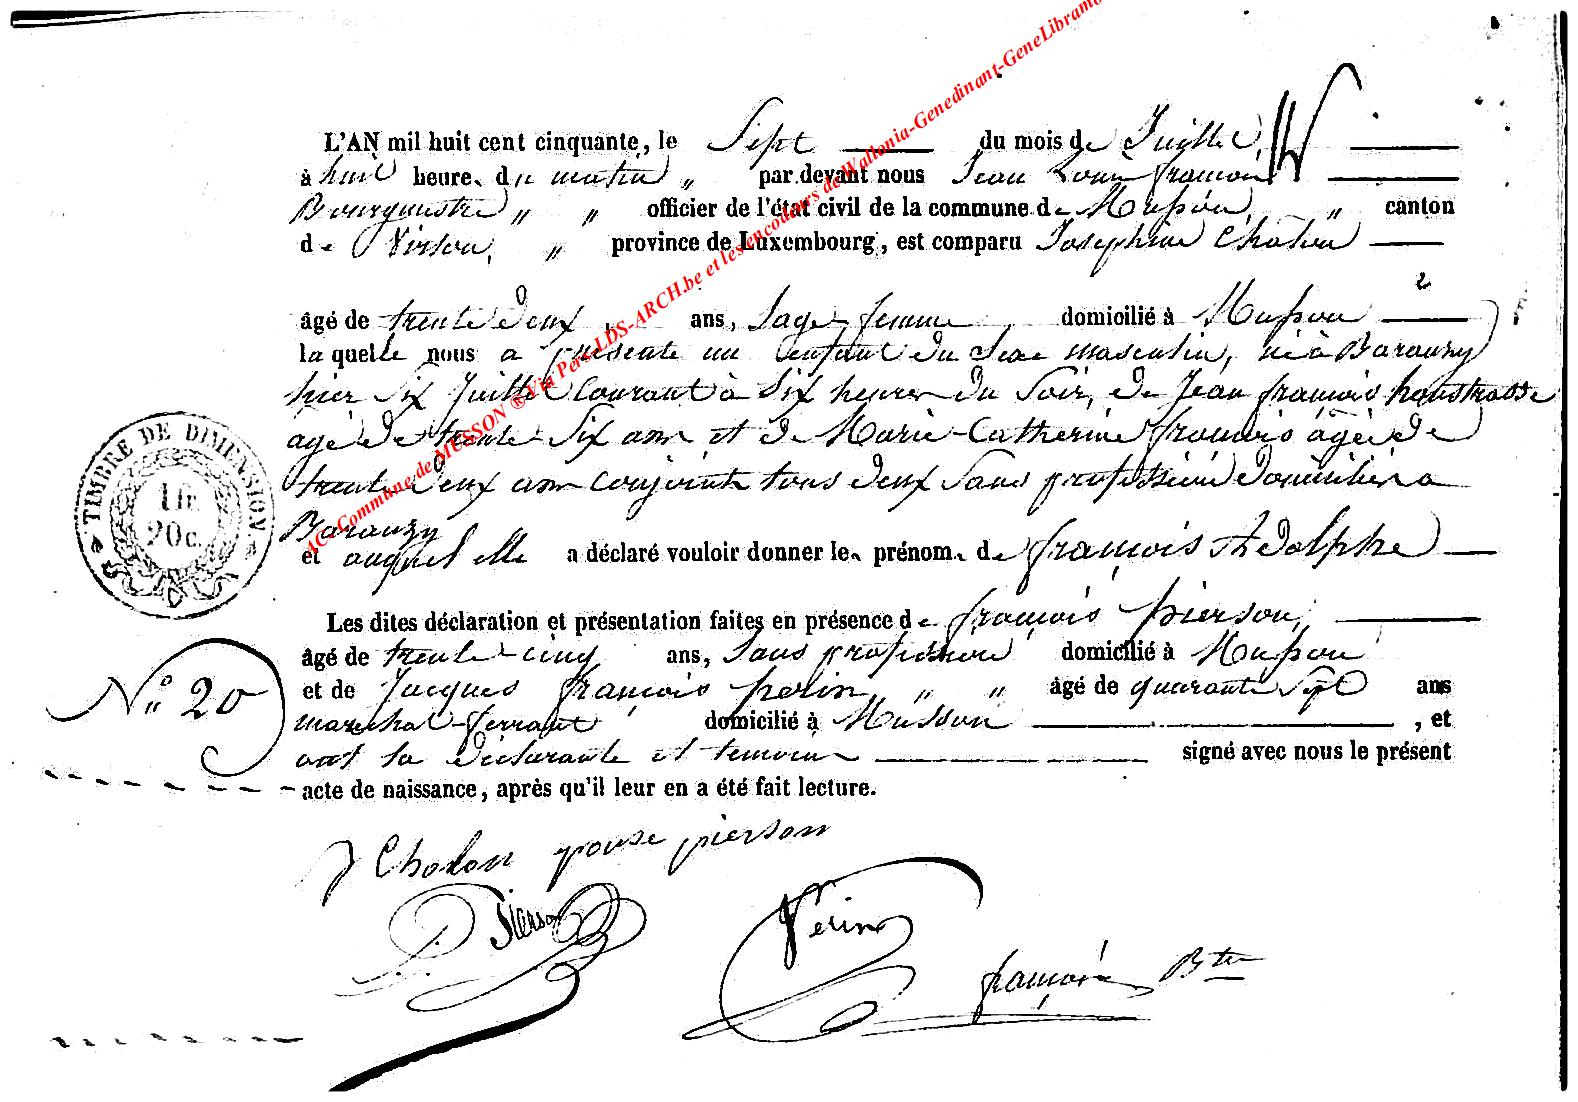 AC-Commune de MUSSON ® Via Pere-LDS-ARCH.be et les encodeurs de Wallonia-Genedinant-GeneLibramo
L'AN mil huit cent cinquante, le Sept du mois de Juillet,
à huit heure. du matin " par devant nous Jean Louis françois
Bourgmestre " " officier de l'état civil de la commune de Musson, " canton
de Virton, " province de Luxembourg, est comparu Josephine Cholon
âgé de trente deux ans, Sage-femme domicilié à Musson
la quelle nous a présenté un enfant du Sexe masculin, né à Baranzy
hier six Juillet Courant à Six heures du Soir, de Jean françois houstrasse
agé de trente Six ans et de Marie-Catherine françois agée de
trente deux ans conjoints tous deux Sans profession domiciliés a
Baranzy
et auquel elle a déclaré vouloir donner le. prénom. de françois Adolphe
Les dites déclaration et présentation faites en présence de françois pierson,
âgé de trente-cinq ans, Sans profession domicilié à Musson
et de Jacques françois perin, " " âgé de quarante Sept ans
maréchal-ferrant domicilié à Musson , et
ont la déclarante et temoins signé avec nous le présent
acte de naissance, après qu'il leur en a été fait lecture.
TIMBRE DE DIMENSION
1 fr.
20 c.
N° 20
J Cholon epouse pierson
Pierson
Perin
françois Btre